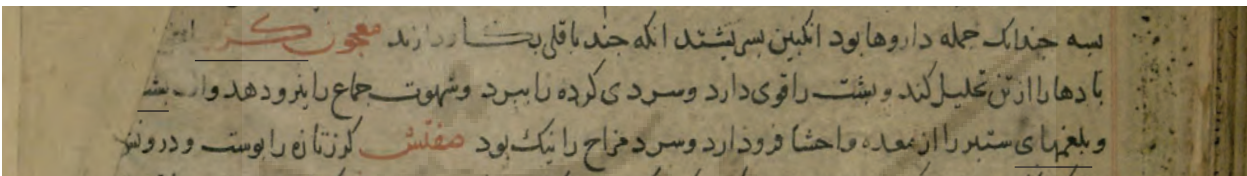 بسه جندانک جمله داروها بود انکبین بسریشند انکه جند باقلی بکار دارند معجون کزر این
بادها را از تن تحلیل کند و پشت را قوی دارد و سردی کرده را ببرد و شهوت جماع را نیرو دهد و آب پشت
و بلغمهای ستبر را از معده و احشا فرود ارد و سرد مزاج را نیک بود صفتش کزر تازه را پوست و درونش